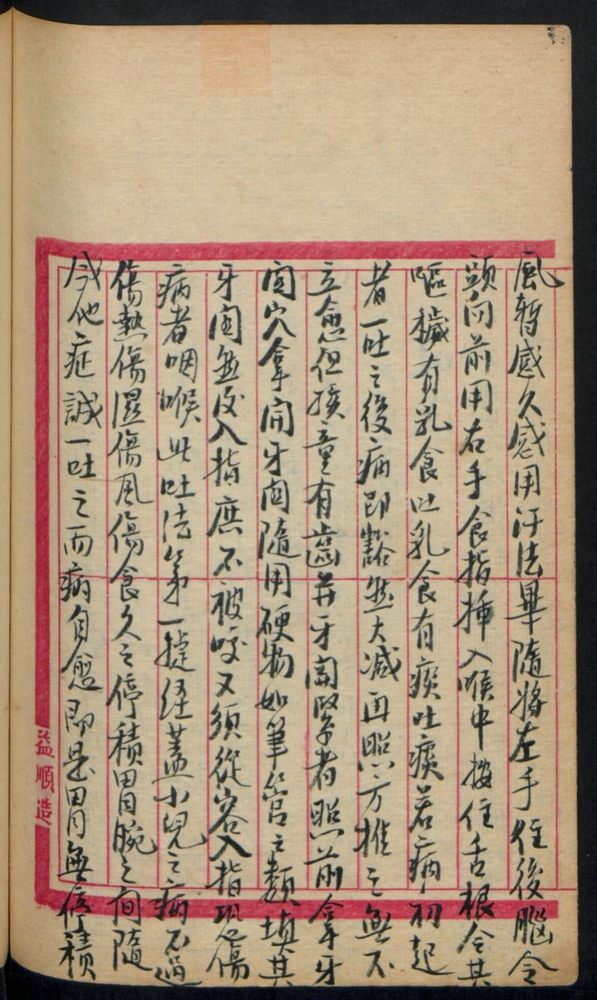 風暫感久感用汗法畢隨將左手住後腦令
頭向前用右手食指揷入喉中按住舌根令其
嘔穢有乳食吐乳食有痰吐痰若病初起
者一吐之後病即豁然大减再照方推之無不
立愈但孩童有齒并牙関緊者照前拿牙
関穴拿開牙関隨用硬物如筆管之類填其
牙関然後入指庶不被咬又須從容入指恐傷
病者咽喉此吐法第一捷径蓋小兒之病不過
傷熱傷濕傷風傷食久之停積胃腕之間隨
成他症誠一吐之而病自愈即是胃無停積
益順造